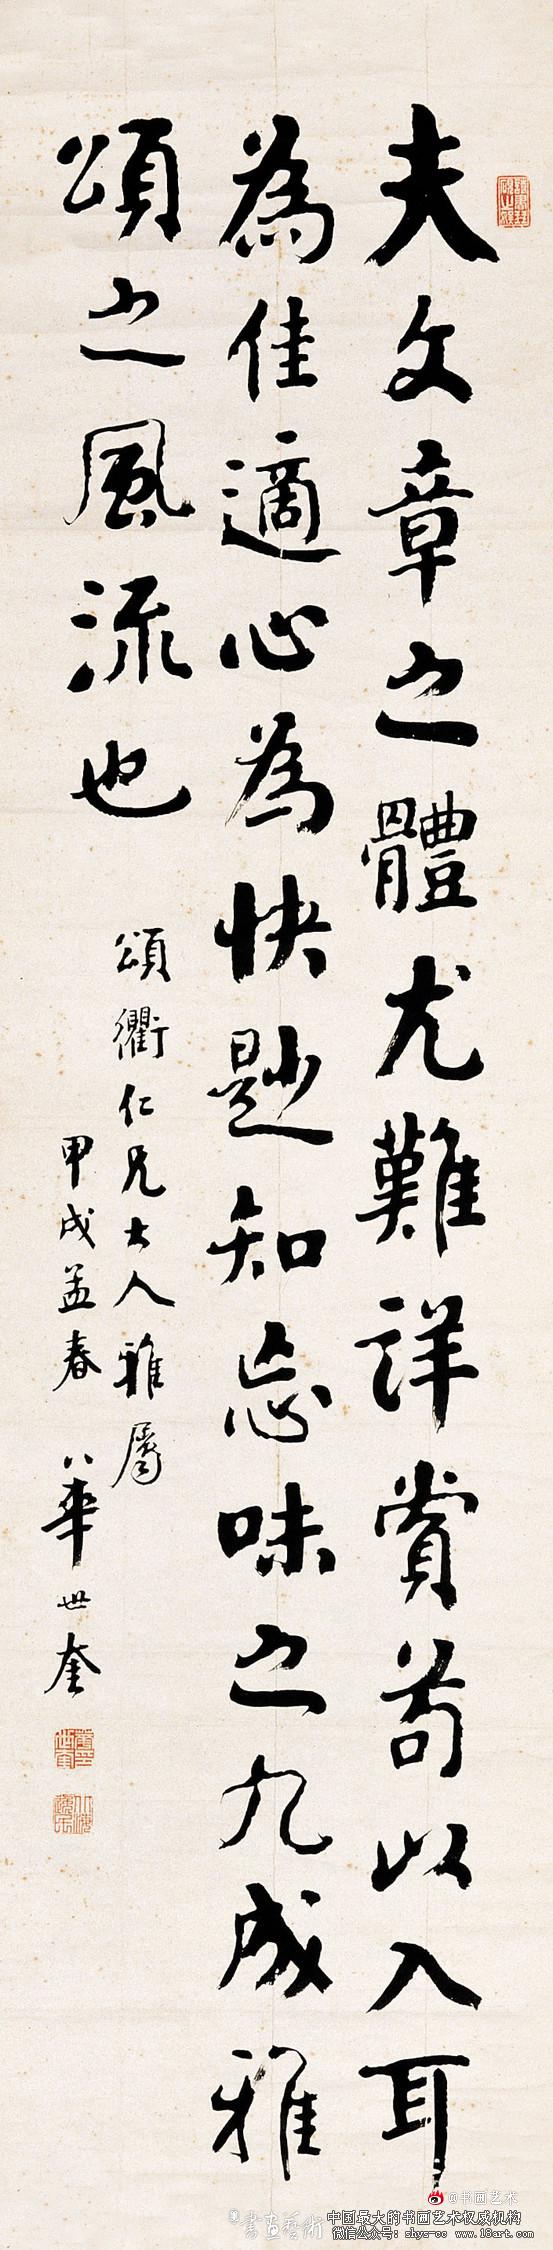 夫文章之體尤難詳賞苟以入耳
為佳適心為快尟知忘味之九成雅
頌之風流也
頌衢仁兄大人雅屬
甲戌孟春 華世奎
@书画艺术
書画藝術
中国最大的书画艺术权威机构
微信公众号：shys-cc www.18art.com